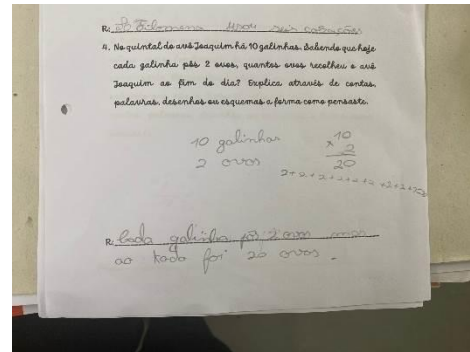 R: A Filomena usou seis corações
4. No quintal do avô Joaquim há 10 galinhas. Sabendo que hoje
cada galinha pôs 2 ovos, quantos ovos recolheu o avô
Joaquim ao fim do dia? Explica através de contas,
palavras, desenhos ou esquemas a forma como pensaste.
10 galinhas
2 ovos
10
× 2
20
2+2+2+2+2+2+2+2+
R: Cada galinha pôs 2 ovos mas
ao todo foi 20 ovos.